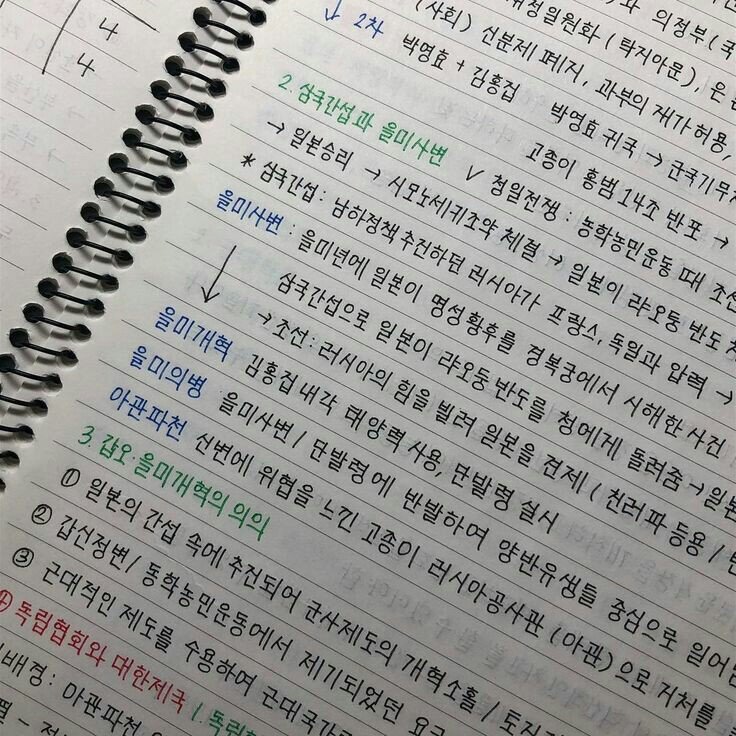 4
4
의정부
(사회) 신분제 폐지, 과부의 재가 허용,
↓ 2차 박영효 + 김홍집 박영효 귀국 → 군국기무처
고종이 홍범 14조 반포 →
2. 삼국간섭과 을미사변 ✓ 청일전쟁 : 동학농민운동 때 조선
→ 일본승리 → 시모노세키조약 체결 → 일본이 랴오둥 반도
* 삼국간섭 : 남하정책 추진하던 러시아가 프랑스, 독일과 압력 →
삼국간섭으로 일본이 랴오둥반도를 청에게 돌려줌 → 일본
→ 조선 : 러시아의 힘을 빌려 일본을 견제 ( 친러파 등용 /
을미사변 : 을미년에 일본이 명성황후를 경복궁에서 시해한 사건
↓
을미개혁 김홍집내각 태양력 사용, 단발령 실시
을미의병 을미사변 / 단발령에 반발하여 양반유생들 중심으로 일어
아관파천 신변에 위협을 느낀 고종이 러시아공사관 (아관)으로 거처를
3. 갑오·을미개혁의 의의
① 일본의 간섭 속에 추진되어 군사제도의 개혁소홀 /
② 갑신정변 / 동학농민운동에서 제기되었던 요구
③ 근대적인 제도를 수용하여 근대국가
④ 독립협회와 대한제국 1. 독립협
배경 : 아관파천